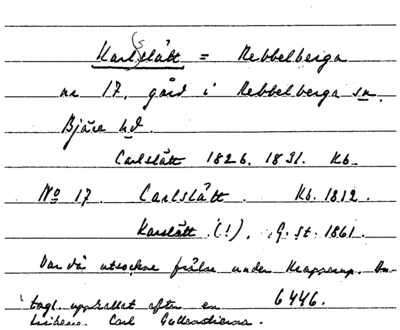 Karl(s)slätt = Rebbelberga
nr 17, gård i Rebbelberga sn,
Bjäre hd.
Carlslätt 1826. 1831. Kb.
No 17 Carlslätt. Kb. 1812.
Karslätt (!). G. St. 1861.
Var då utsockne frälse under Krapperup. An-
tagl. uppkallat efter en 6446.
Carl Gyllenstierna.